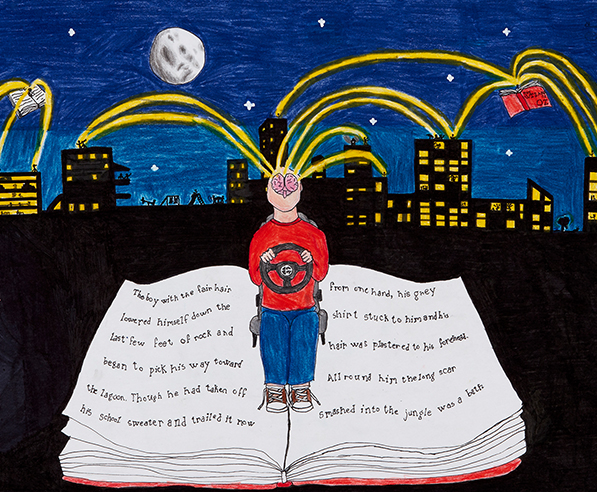 The boy with the fair hair
lowered himself down the
last few feet of rock and
began to pick his way toward
the lagoon. Though he had taken off
his school sweater and trailed it now
from one hand, his grey
shirt stuck to him and his
hair was plastered to his forehead.
All round him the long scar
smashed into the jungle was a bath